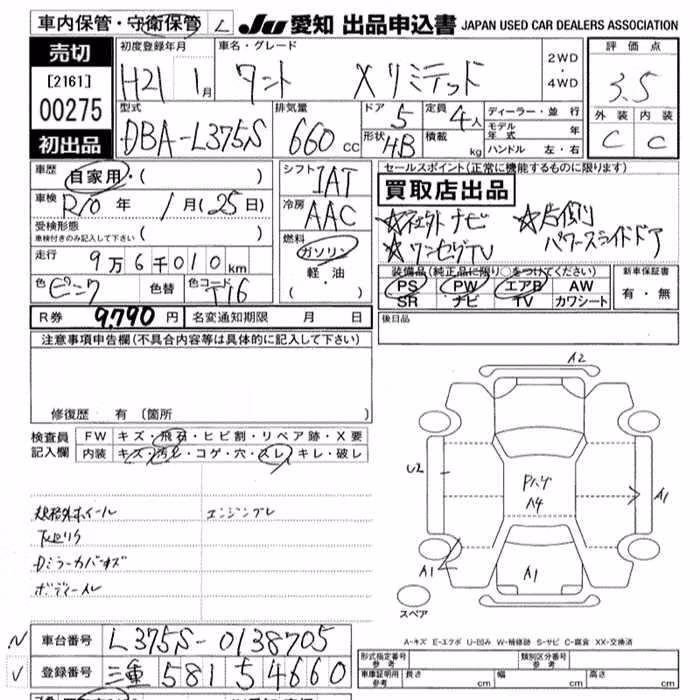 車内保管・守衛保管 L JU 愛知 出品申込書 JAPAN USED CAR DEALERS ASSOCIATION
売切 [2161] 00275 初出品
初度登録年月 車名・グレード 2WD・4WD 評価点
H21 1月 タント Xリミテッド 3.5
型式 排気量 ドア 5 定員 4人 ディーラー・並行 外装 内装
DBA-L375S 660cc 形状 HB 積載 kg モデル年式 年 ハンドル 左・右 C C
車歴 自家用・( ) シフト IAT セールスポイント(正常に機能するものに限ります)
車検 R10年 1月(25日) 冷房 AAC 買取店出品
受検形態 車検付きのみ記入して下さい ( ) 燃料 ガソリン・軽油・( )
☆ナビ ☆片側パワースライドドア
☆ワンセグTV
走行 9万6千010km
装備品(純正品に限り○をつけてください) 新車保証書
色 ピンク 色替 色コード T16 PS PW エアB AW 有・無
SR ナビ TV カワシート
R券 9,790円 名変通知期限 月 日 後日品
注意事項申告欄(不具合内容等は具体的に記入して下さい)
修復歴 有 〔箇所 〕
検査員記入欄 FW キズ・飛石・ヒビ割・リペア跡・X要
内装 キズ・汚れ・コゲ・穴・スレ・キレ・破レ
A2
U2 A1
A1 A1
スペア
規格外ホイール
下廻りサ
Dミラーカバーキズ
A-キズ E-エクボ U-凹み W-補修跡 S-サビ C-腐食 XX-交換済
車台番号 L375S-0138705 型式指定番号 参考 類別区分番号 参考
登録番号 三重 581 5 4660 車庫証明用 参考 長さ cm 幅 cm 高さ cm